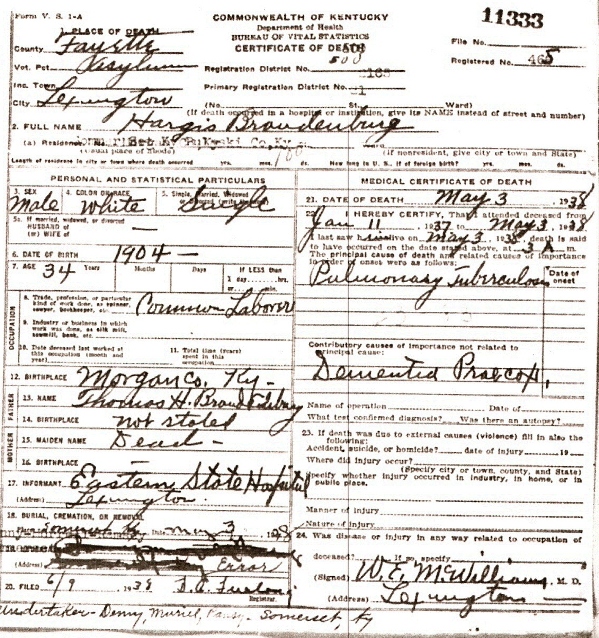 Form V. S. 1-A
COMMONWEALTH OF KENTUCKY
11333
Department of Health
BUREAU OF VITAL STATISTICS
CERTIFICATE OF DEATH
1. PLACE OF DEATH
County Fayette
File No.
Vot. Pct. Asylum
Registration District No. 165
Registered No. 465
Inc. Town
Primary Registration District No.
City Lexington
(No. St. Ward)
(If death occurred in a hospital or institution, give its NAME instead of street and number)
2. FULL NAME Hargis Brandenburg
(a) Residence. No. Pulaski Co. Ky.
(Usual place of abode) (If nonresident, give city or town and State)
Length of residence in city or town where death occurred yrs. mos. ds. How long in U. S., if of foreign birth? yrs. mos. ds.
PERSONAL AND STATISTICAL PARTICULARS
3. SEX Male
4. COLOR OR RACE White
5. Single, Married, Widowed or Divorced (write the word) Single
5a. If married, widowed, or divorced
HUSBAND of
(or) WIFE of
6. DATE OF BIRTH 1904 -
7. AGE 34 Years Months Days If LESS than
1 day, hrs.
or min.
OCCUPATION
8. Trade, profession, or particular kind of work done, as spinner, sawyer, bookkeeper, etc. Common Laborer
9. Industry or business in which work was done, as silk mill, sawmill, bank, etc.
10. Date deceased last worked at this occupation (month and year)
11. Total time (years) spent in this occupation
12. BIRTHPLACE Morgan Co. Ky -
FATHER
13. NAME Thomas H. Brandenburg
14. BIRTHPLACE not stated
MOTHER
15. MAIDEN NAME Dead -
16. BIRTHPLACE
17. INFORMANT Eastern State Hospital
(Address) Lexington
18. BURIAL, CREMATION, OR REMOVAL
Place Somerset Ky Date May 3 1938
Error
20. FILED 6/9 1938
Registrar.
Undertaker - Denny, Murrel, Somerset, Ky
MEDICAL CERTIFICATE OF DEATH
21. DATE OF DEATH May 3 1938
22. I HEREBY CERTIFY, That I attended deceased from
Jan 11 1937 to May 3 1938
I last saw him alive on May 3 1938 death is said
to have occurred on the date stated above, at 3 A m.
The principal cause of death and related causes of importance in order of onset were as follows:
Date of onset
Pulmonary Tuberculosis
Contributory causes of importance not related to principal cause:
Dementia Praecox
Name of operation Date of
What test confirmed diagnosis? Was there an autopsy?
23. If death was due to external causes (violence) fill in also the following:
Accident, suicide, or homicide? date of injury 19
Where did injury occur?
(Specify city or town, county, and State)
Specify whether injury occurred in industry, in home, or in public place.
Manner of injury
Nature of injury
24. Was disease or injury in any way related to occupation of
deceased? If so, specify
(Signed) W. E. McWilliams, M. D.
(Address) Lexington